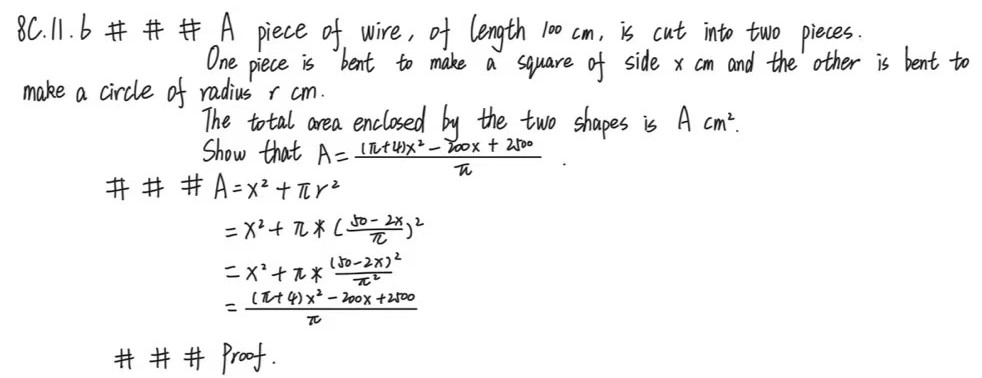 8C.11.b # # # A piece of wire, of length 100 cm, is cut into two pieces.
One piece is bent to make a square of side x cm and the other is bent to
make a circle of radius r cm.
The total area enclosed by the two shapes is A cm².
Show that A = \frac{(π+4)x² - 200x + 2500}{π}.
# # # A = x² + πr²
= x² + π * (\frac{50-2x}{π})²
= x² + π * \frac{(50-2x)²}{π²}
= \frac{(π+4)x² - 200x + 2500}{π}
# # # Proof.